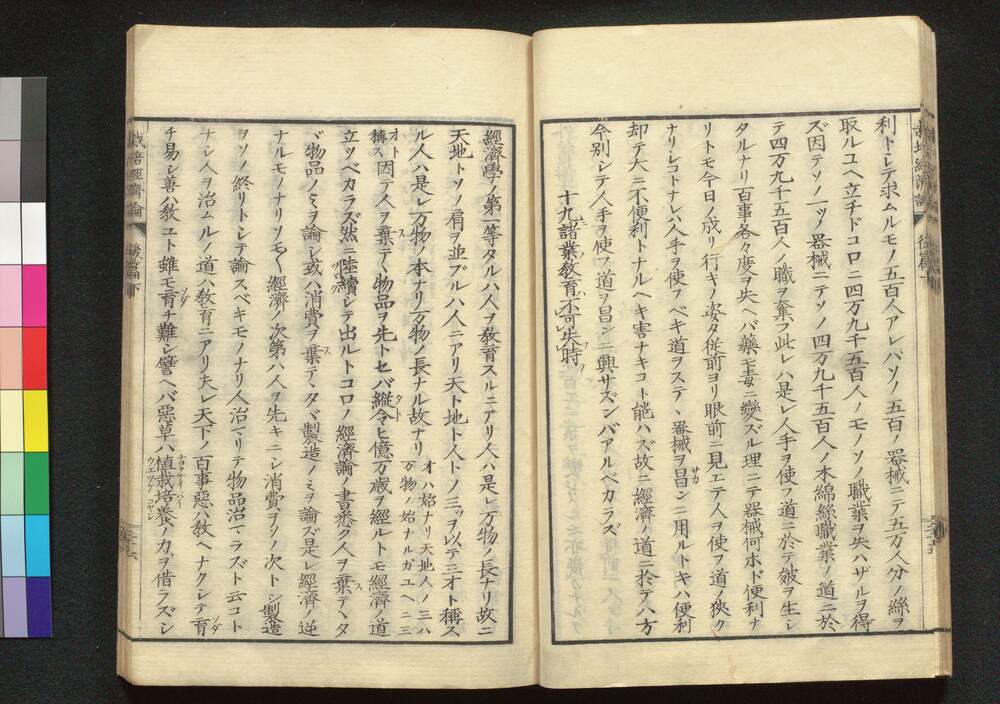 利トシテ求ムルモノ五百人アレバソノ五百ノ器械ニテ五万人分ノ絲ヲ
取ルユヘ立チドコロニ四万九千五百人ノモノソノ職業ヲ失ハザルヲ得
ズ因テソノ一ツノ器械ニテソノ四万九千五百人ノ木綿絲職業ノ道ニ於
テ四万九千五百人ノ職ヲ奪フ此レハ是レ人手ヲ使フ道ニ於テ皴ヲ生シ
タルナリ百事各々度ヲ失ヘバ藥モ毒ニ變ズル理ニテ器械何ホド便利ナ
リトモ今日ノ成リ行キノ姿タ従前ヨリ眼前ニ見エテ人ヲ使フ道ノ狹ク
ナリシコトナレハ人手ヲ使フベキ道ヲステヽ器械ヲ昌ンニ用ルトキハ便利
却テ大ニ不便利トナルヘキ害ナキコト能ハズ故ニ經濟ノ道ニ於テハ方
今別シテ人手ヲ使フ道ヲ昌ンニ興サズンバアルベカラズ
十九諸業教育不可失時
經濟學ノ第一等タルハ人ヲ教育スルニアリ人ハ是レ万物ノ長ナリ故ニ
天地トソノ肩ヲ並ブルハ人ニアリ天ト地ト人トノ三ツヲ以テ三才ト稱ス
ル人ハ是レ万物ノ本ナリ万物ノ長ナル故ナリ オハ始ナリ天地人ノ三ハ万物ノ始ナルガユヘニ三
オト稱ス 因テ人ヲ棄テヽ物品ヲ先トセバ縦令ヒ億万歳ヲ經ルトモ經濟ノ道
立ツベカラズ然ニ陸續シテ出ルトコロノ經濟論ノ書悉ク人ヲ棄テヽタ
ヾ物品ノミヲ論シ或ハ消費ヲ棄テヽタヾ製造ノミヲ論ズ是レ經濟ノ逆
ナルモノナリソモ〱經濟ノ次第ハ人ヲ先キニシ消費ヲソノ次トシ製造
ヲソノ終リトシテ論スベキモノナリ人治マリテ物品治マラズト云コト
ナシ人ヲ治ムルノ道ハ教育ニアリ夫レ天下ノ百事惡ハ教ヘナクシテ育
チ易シ善ハ教ユト雖モ育チ難シ譬ヘバ惡草ハ植栽培養ノ力ヲ借ラズシ
栽培經濟論
後篇下